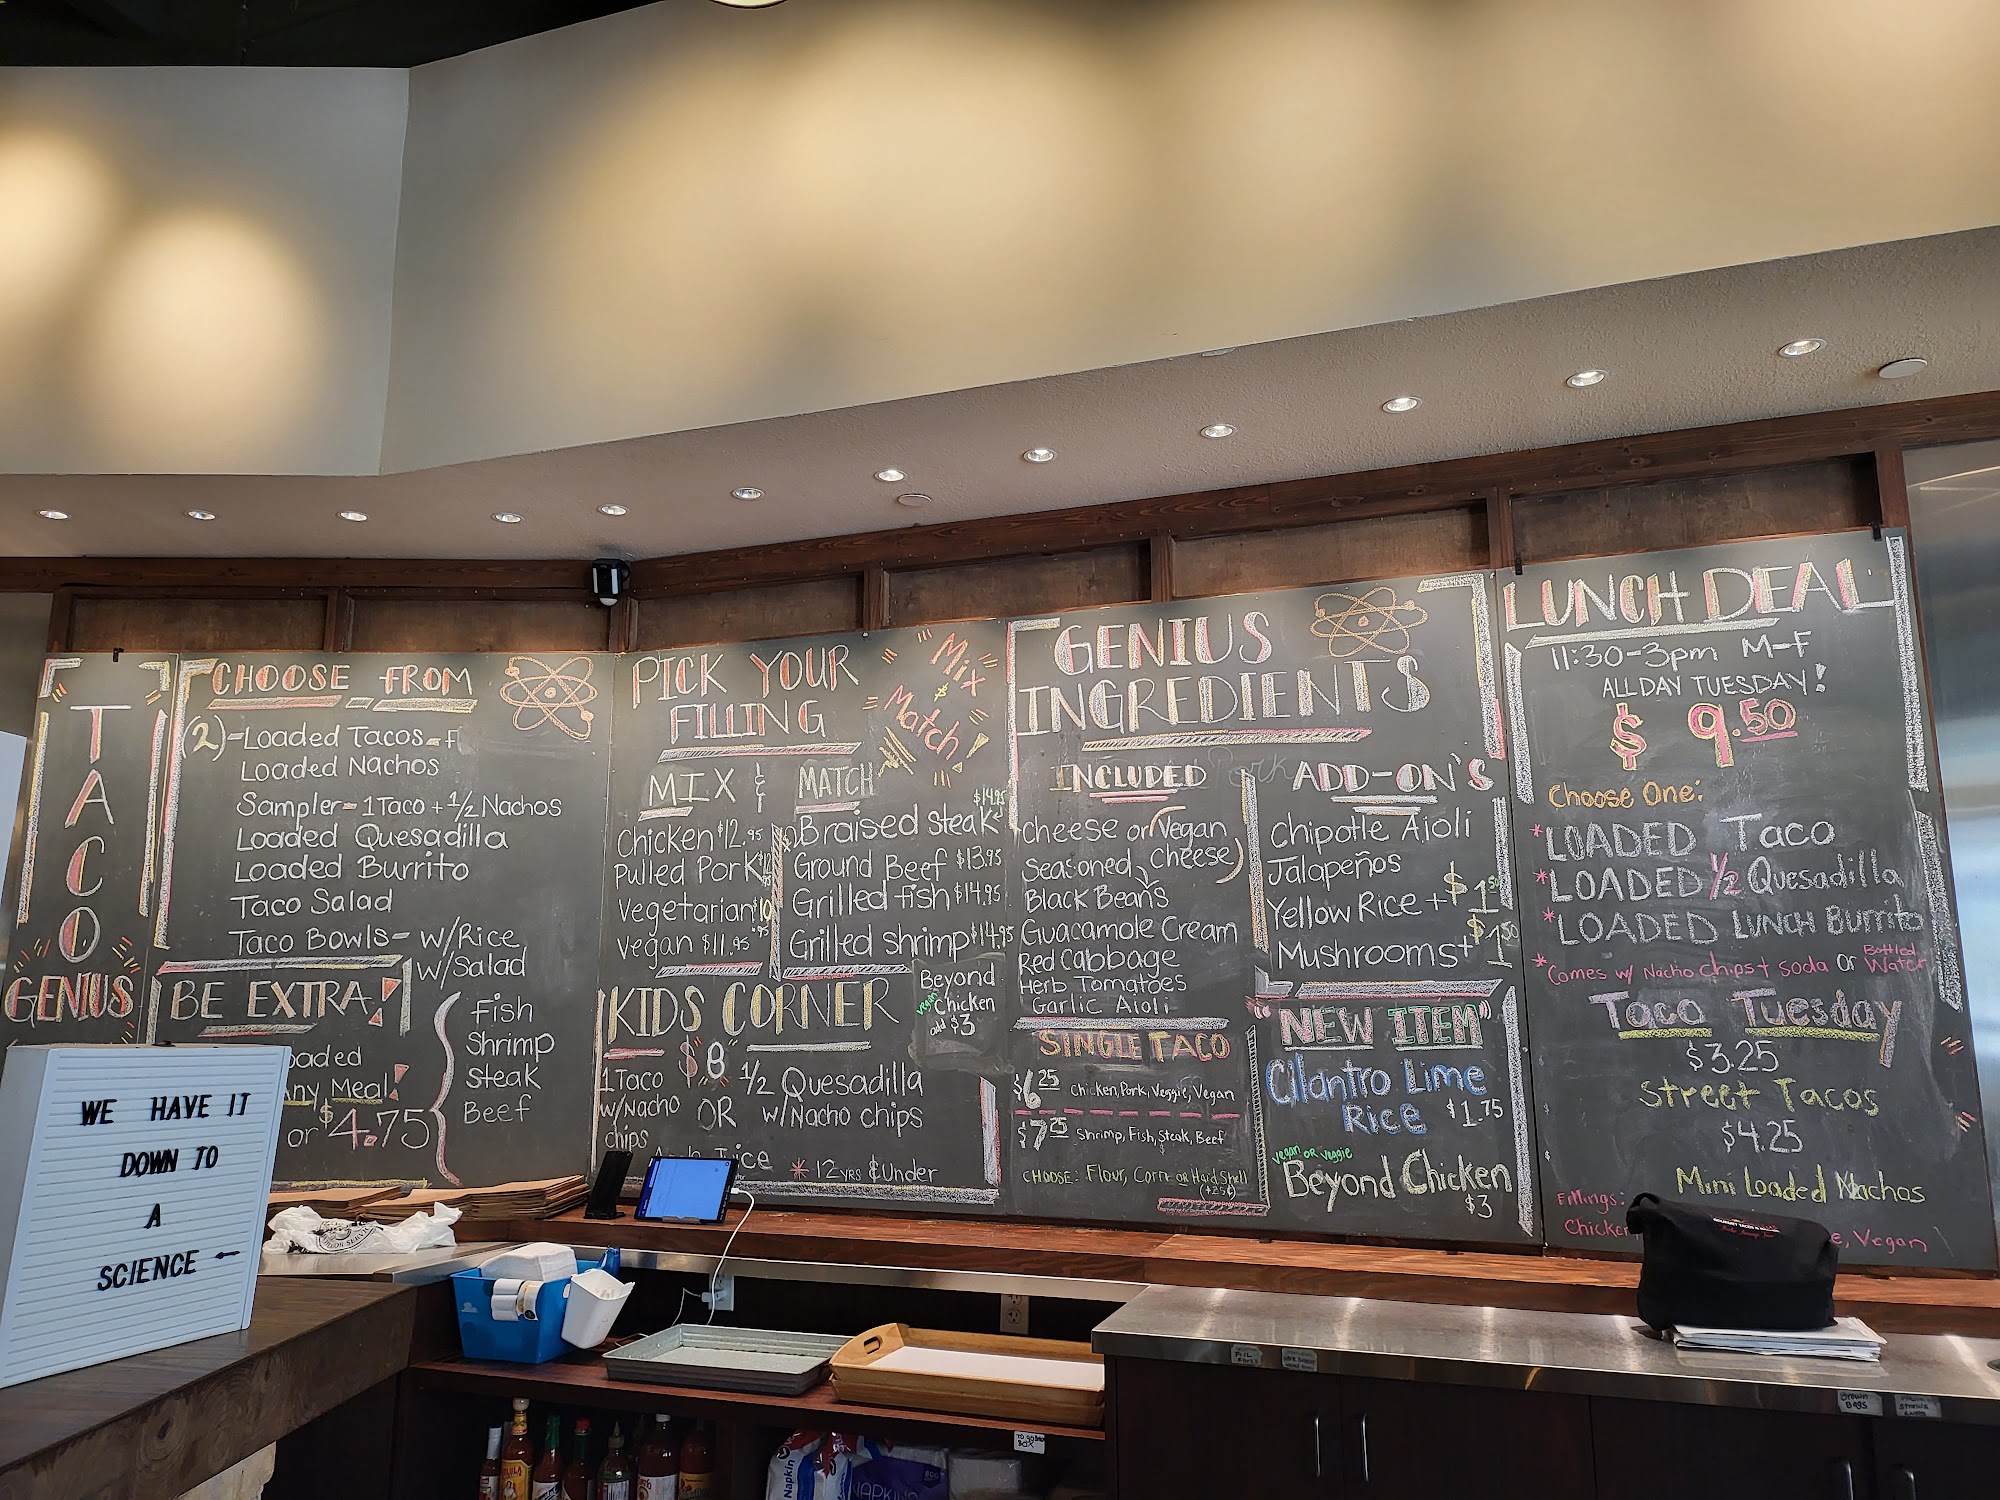 TACO
GENIUS
CHOOSE FROM
(2)-Loaded Tacos
Loaded Nachos
Sampler- 1 Taco + 1/2 Nachos
Loaded Quesadilla
Loaded Burrito
Taco Salad
Taco Bowls- w/Rice
w/Salad
BE EXTRA!
Meal!
$4.75
Fish
Shrimp
Steak
Beef
PICK YOUR
FILLING
Mix
&
Match
MIX & MATCH
Chicken $12.95
Pulled Pork
Vegetarian
Vegan $11.95
$14.95
Braised Steak
Ground Beef $13.95
Grilled fish $14.95
Grilled shrimp $14.95
Beyond
vegan Chicken
add $3
KIDS CORNER
$8
1 Taco
w/Nacho
chips
OR
1/2 Quesadilla
w/Nacho chips
* 12 YRS & Under
GENIUS
INGREDIENTS
INCLUDED
Cheese or (Vegan
Cheese)
Seasoned
Black Beans
Guacamole Cream
Red Cabbage
Herb Tomatoes
Garlic Aioli
ADD-ON'S
Chipotle Aioli
Jalapeños
Yellow Rice + $1.50
Mushrooms + $1.50
SINGLE TACO
$6.25 Chicken, Pork, Veggie, Vegan
$7.25 Shrimp, Fish, Steak, Beef
CHOOSE: Flour, Corn or Hard Shell
(+25¢)
"NEW ITEM"
Cilantro Lime
Rice $1.75
vegan or veggie
Beyond Chicken
$3
LUNCH DEAL
11:30-3pm M-F
ALL DAY TUESDAY!
$9.50
Choose One:
*LOADED Taco
*LOADED 1/2 Quesadilla
*LOADED LUNCH Burrito
*Comes w/ Nacho Chips + Soda or Bottled Water
Taco Tuesday
$3.25
Street Tacos
$4.25
Mini Loaded Nachos
Fillings:
Vegan
WE HAVE IT
DOWN TO
A
SCIENCE